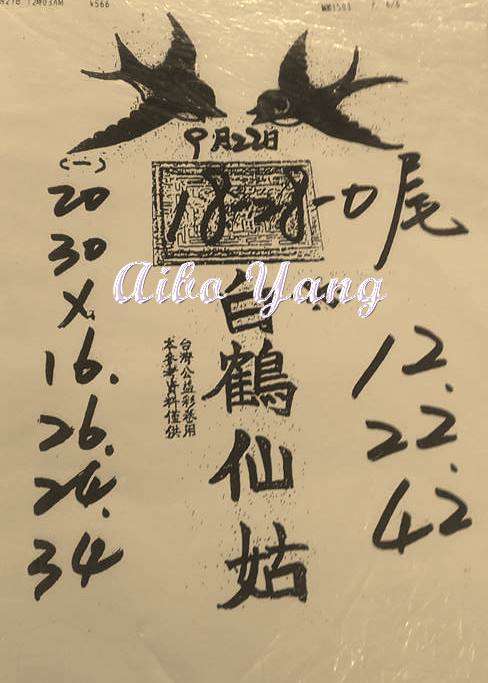 12:03AM
P. 6/6
9月22日
(一)
18-28-0尾
20
30
X
16.
26.
24.
34.
Aibo Yang
白鶴仙姑
台灣公益彩卷用
本參考資料僅供
12.
22.
42